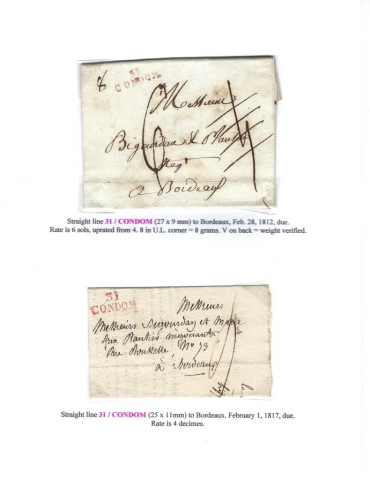 8
31
CONDOM
6
4
Messieurs
Bigourdan &
Negts
a Bordeaux
Straight line 31 / CONDOM (27 x 9 mm) to Bordeaux, Feb. 28, 1812, due.
Rate is 6 sols, uprated from 4. 8 in U.L. corner = 8 grams. V on back = weight verified.
31
CONDOM
Messieurs
Messieurs et
negociants
Rue No 73
a Bordeaux
Straight line 31 / CONDOM (25 x 11mm) to Bordeaux. February 1, 1817, due.
Rate is 4 decimes.